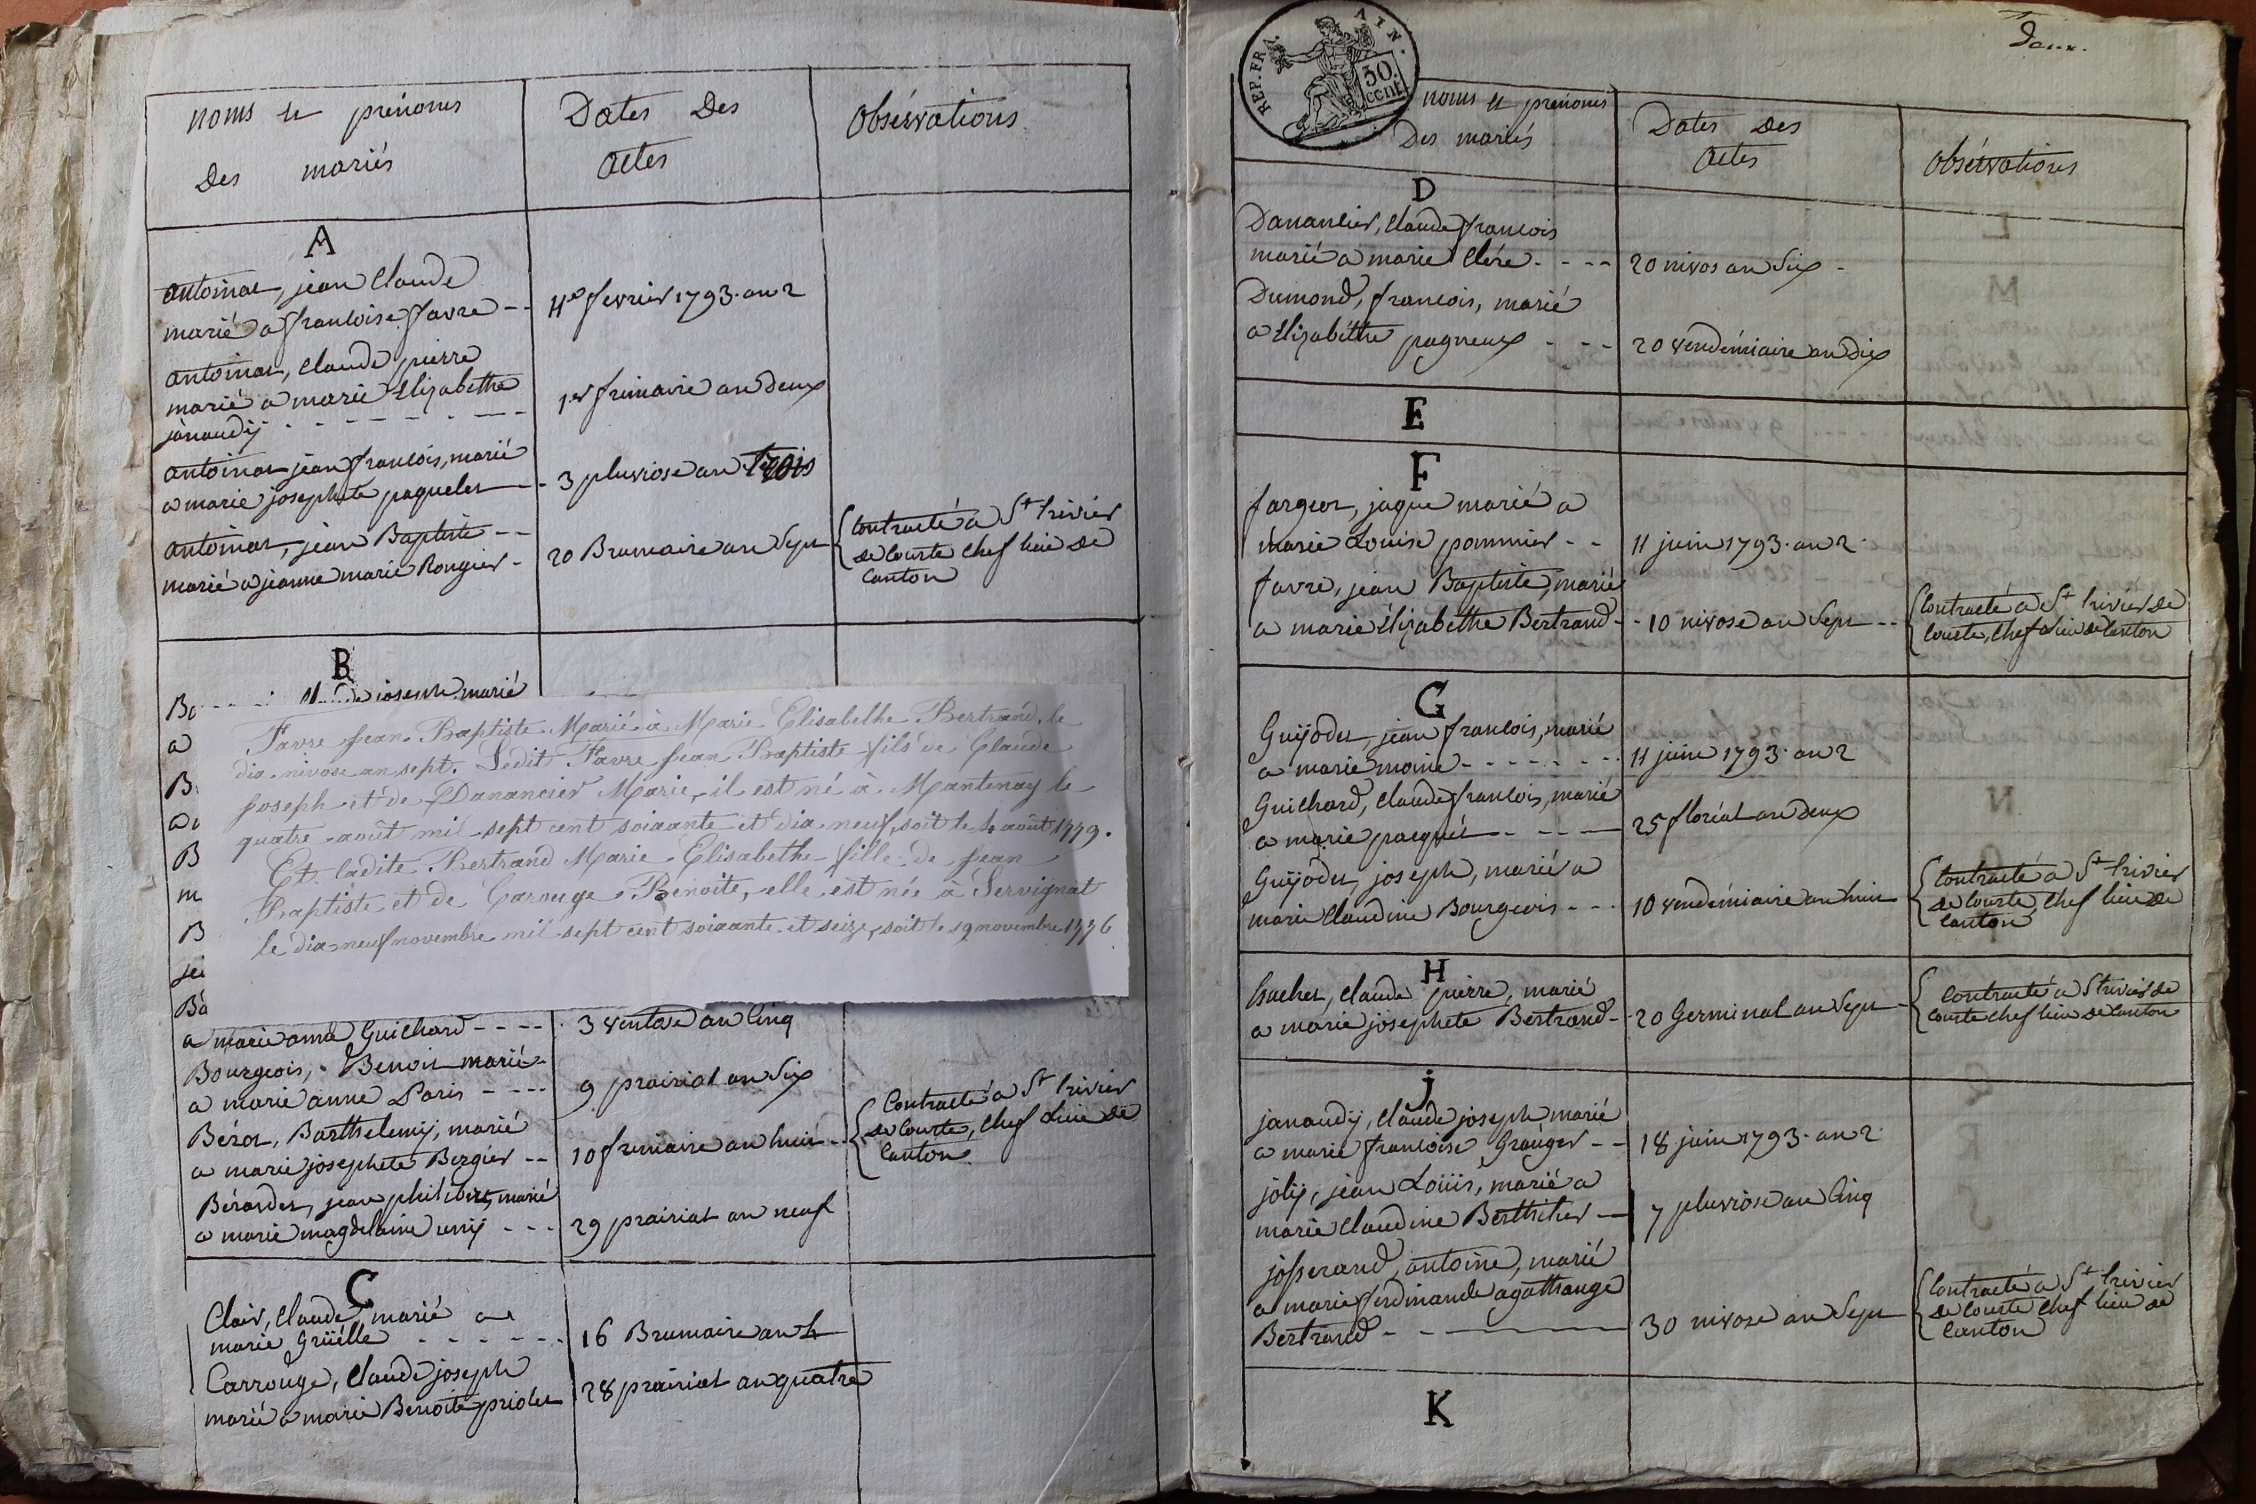 noms et prénoms
des mariés
Dates des
actes
Obsérvations
A
antoinat, jean Claude
marié a francoise favre
4e fevrier 1793. an 2
antoinat, Claude pierre
marié a marie Elizabethe
janaudÿ
1er frimaire an deux
antoinat jean francois, marié
a marie josephete paquelet
3 pluviose an trois
antoinat, jean Baptiste
marié a jeanne marie Rongier
20 Brumaire an Sept
Contracté a St trivier
de Courte Chef lieu de
Canton
B
joseph marié
Favre Jean-Baptiste Marié à Marie Elisabethe Bertrand, le
dix nivose an sept. Ledit Favre Jean Baptiste fils de Claude
Joseph et de Danancier Marie, il est né à Mantenay le
quatre août mil sept cent soixante et dix neuf, soit le 4 août 1779.
Et ladite Bertrand Marie Elisabethe fille de Jean
Baptiste et de Carouge Benoite, elle est née à Servignat
le dix neuf novembre mil sept cent soixante et seize, soit le 19 novembre 1776
a
B
a
B
m
B
Ba
a marie anne Guichard
3 ventose an Cinq
Bourgeois, Benoit marié
a marie anne Paris
9 prairial an Six
Bérot, Barthelemÿ, marié
a marie josephete Bergier
10 frimaire an huit
Contracté a St trivier
de Courte, Chef Lieu de
Canton
Bérardet, jean philibert, marié
a marie magdelaine
29 prairial an neuf
C
Clair, Claude, marié a
marie Grüélle
16 Brumaire an 4
Carrouge, Claude joseph
marié a marie Benoite priolet
28 prairial an quatre
deux.
REP. FRA.
AIN.
50.
cent
noms et prénoms
Des mariés
Dates des
actes
Obsérvations
D
Danancier, Claude francois
marié a marie Clére
20 nivos an Six
Dumond, francois, marié
a Elizabéthe pagneux
20 vendémiaire an dix
E
F
fargeot, jaque marié a
marie Louise pommier
11 juin 1793. an 2
favre, jean Baptiste, marié
a marie Elizabethe Bertrand
10 nivose an Sept
Contracté a St trivier de
Courte, Chef Lieu de Canton
G
Guÿodet, jean francois, marié
a marie moine
11 juin 1793. an 2
Guichard, Claude francois, marié
a marie pacquet
25 floréal an deux
Guÿodet, joseph, marié a
marie Claudine Bourgeois
10 vendémiaire an huit
Contracté a St trivier
de Courte, Chef lieu de
Canton
H
huchet, Claude pierre, marié
a marie josephete Bertrand
20 Germinal an Sept
Contracté a St trivier de
Courte chef lieu de Canton
j
janaudÿ, Claude joseph marié
a marie francoise Granger
18 juin 1793. an 2
jolÿ, jean Loüis, marié a
marie Claudine Berthilier
7 pluviose an Cinq
josserand, antoine, marié
a marie ferdinande agathange
Bertrand
30 nivose an Sept
Contracté a St trivier
de Courte Chef lieu de
Canton
K